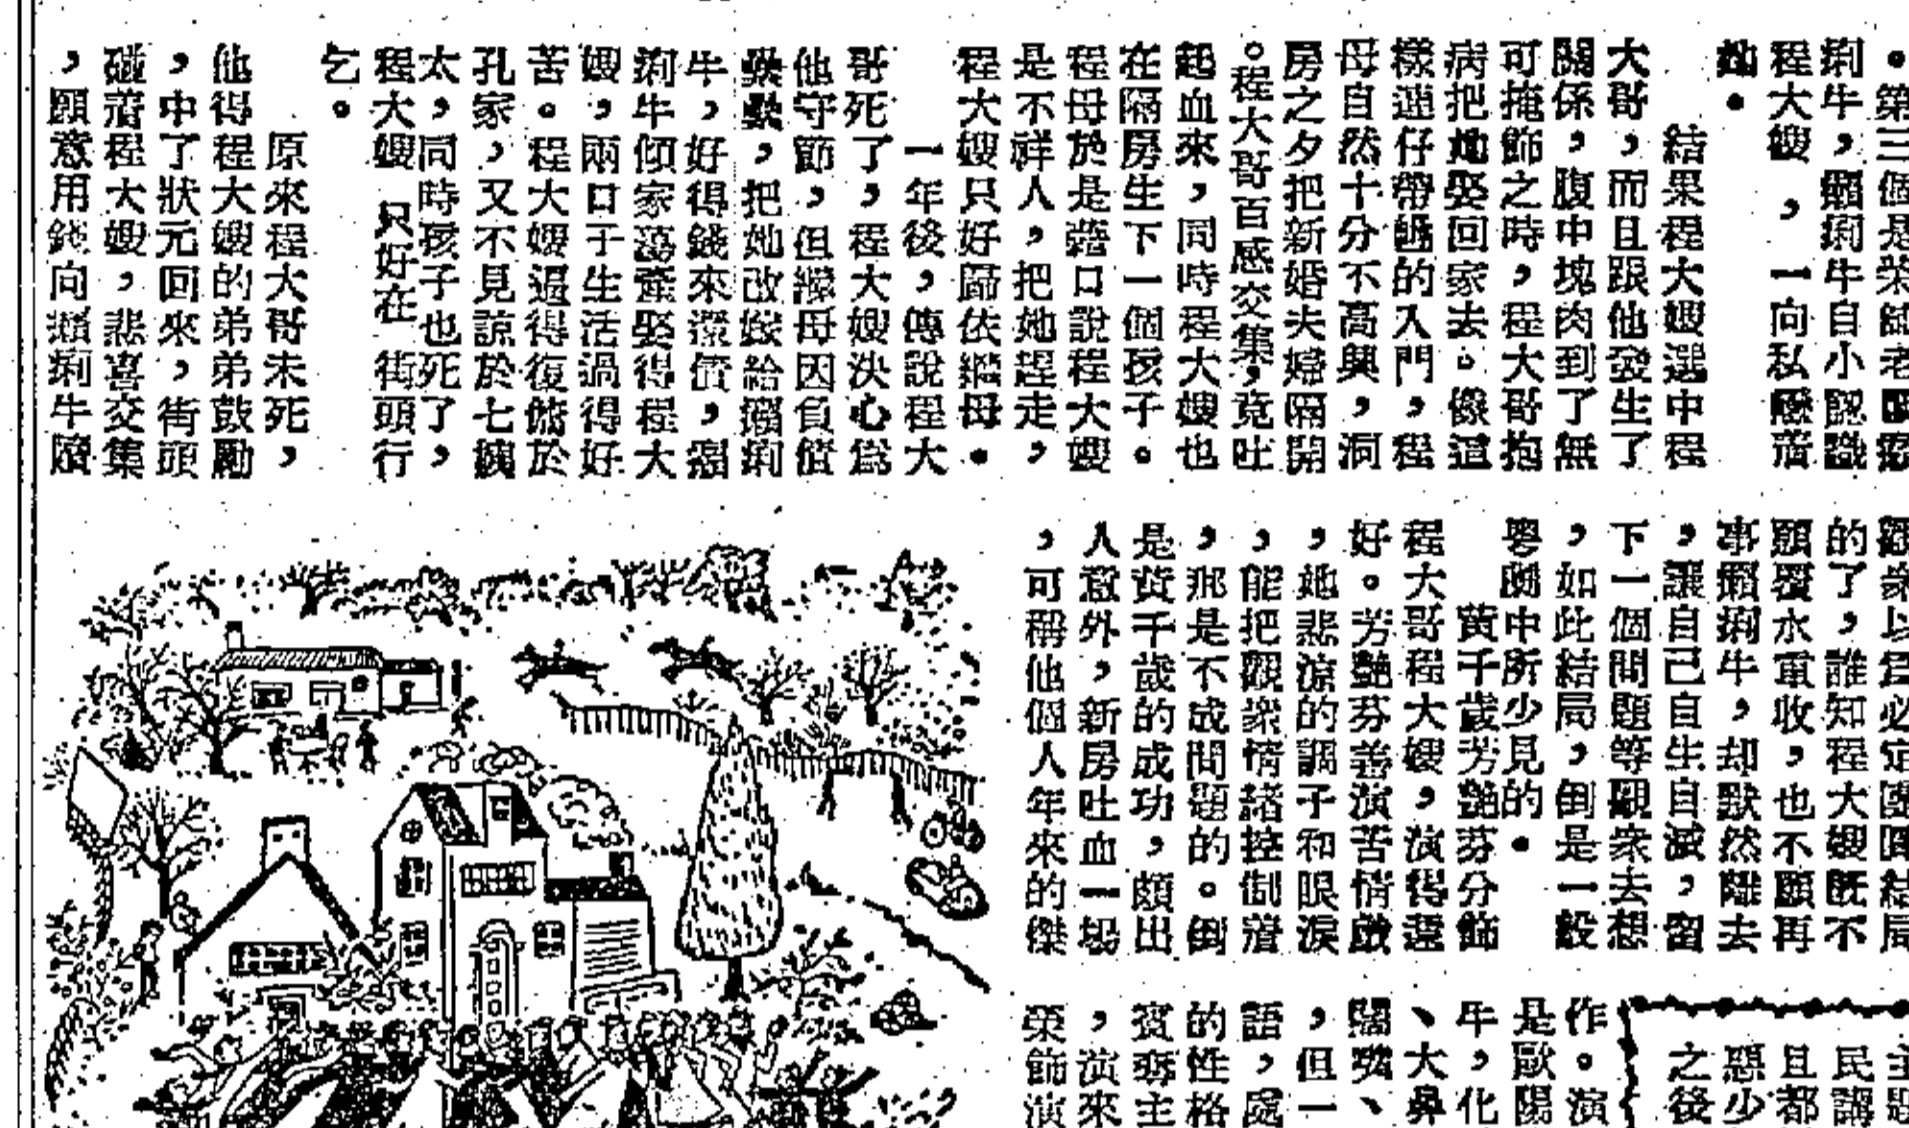 。第三個是
痢牛,癩痢牛自小認識
程大嫂,一向私戀着
她。
結果程大嫂選中程
大哥,而且跟他發生了
關係,腹中塊肉到了無
可掩飾之時,程大哥抱
病把她娶回家去。像這
樣連仔帶乸的入門,程
母自然十分不高興,洞
房之夕把新婚夫婦隔開
。程大哥百感交集,竟吐
起血來,同時程大嫂也
在隔房生下一個孩子。
程母於是藉口說程大嫂
是不祥人,把她趕走,
程大嫂只好歸依繼母。
一年後,傳說程大
哥死了,程大嫂決心為
他守節,但繼母因負債
纍纍,把她改嫁給癩痢
牛,好得錢來還債,癩
痢牛傾家蕩產娶得程大
嫂,兩口子生活過得好
苦。程大嫂逼得復傭於
孔家,又不見諒於七姨
太,同時孩子也死了,
程大嫂只好在街頭行
乞。
原來程大哥未死,
他得程大嫂的弟弟鼓勵
,中了狀元回來,街頭
碰着程大嫂,悲喜交集
,願意用錢向癩痢牛贖
觀衆以爲必定團圓結局
的了,誰知程大嫂既不
願覆水重收,也不願再
事癩痢牛,却默然離去
,讓自己自生自滅,留
下一個問題等觀衆去想
,如此結局,倒是一般
粵劇中所少見的。
黃千歲芳艶芬分飾
程大哥程大嫂,演得還
好。芳艶芬善演苦情戲
,她悲涼的調子和眼淚
,能把觀衆情緒控制着
,那是不成問題的。倒
是黃千歲的成功,頗出
人意外,新房吐血一場
,可稱他個人年來的傑
作。演
是歐陽
牛,化
、大鼻
闊嘴、
,但一
語,處
的性格
賓奪主
,演來
榮飾演
民講
且都
惡少
之後